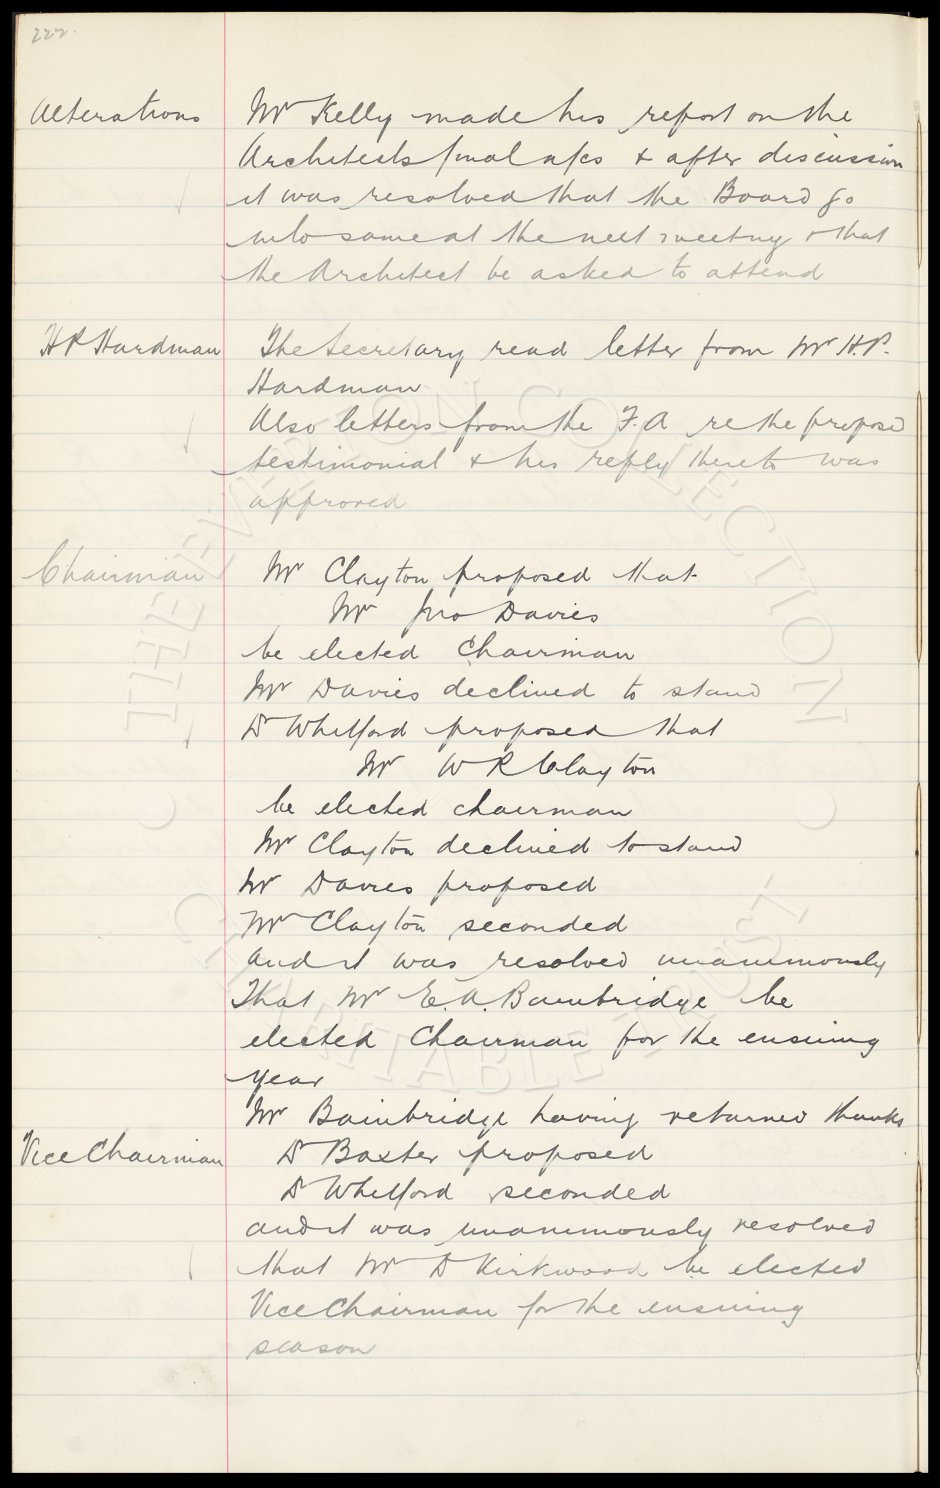 222.
Alterations Mr Kelly made his report on the
Architects final a/cs & after discussion
it was resolved that the Board go
into same at the next meeting & that
the Architect be asked to attend
H P Hardman The Secretary read letter from Mr H.P.
Hardman
Also letters from the F.A re the proposed
testimonial & his reply thereto was
approved
Chairman Mr Clayton proposed that
Mr Jno Davies
be elected Chairman
Mr Davies declined to stand
Dr Whitford proposed that
Mr W R Clayton
be elected chairman
Mr Clayton declined to stand
Mr Davies proposed
Mr Clayton seconded
and it was resolved unanimously
That Mr E.A. Bainbridge be
elected Chairman for the ensuing
year
Mr Bainbridge having returned thanks
Vice Chairman Dr Baxter proposed
Dr Whitford seconded
and it was unanimously resolved
that Mr D Kirkwood be elected
Vice Chairman for the ensuing
season
THE EVERTON COLLECTION
CHARITABLE TRUST